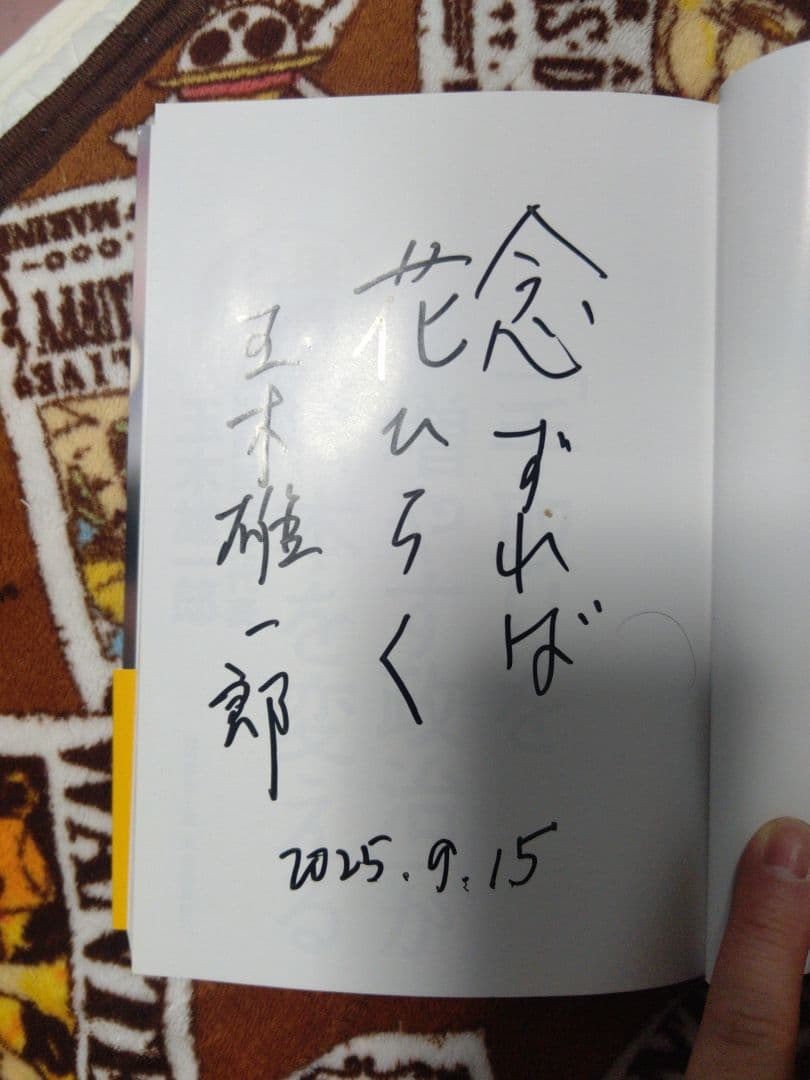 念ずれば
花ひらく
玉木雄一郎
2025.9.15
MARINE
WANTE